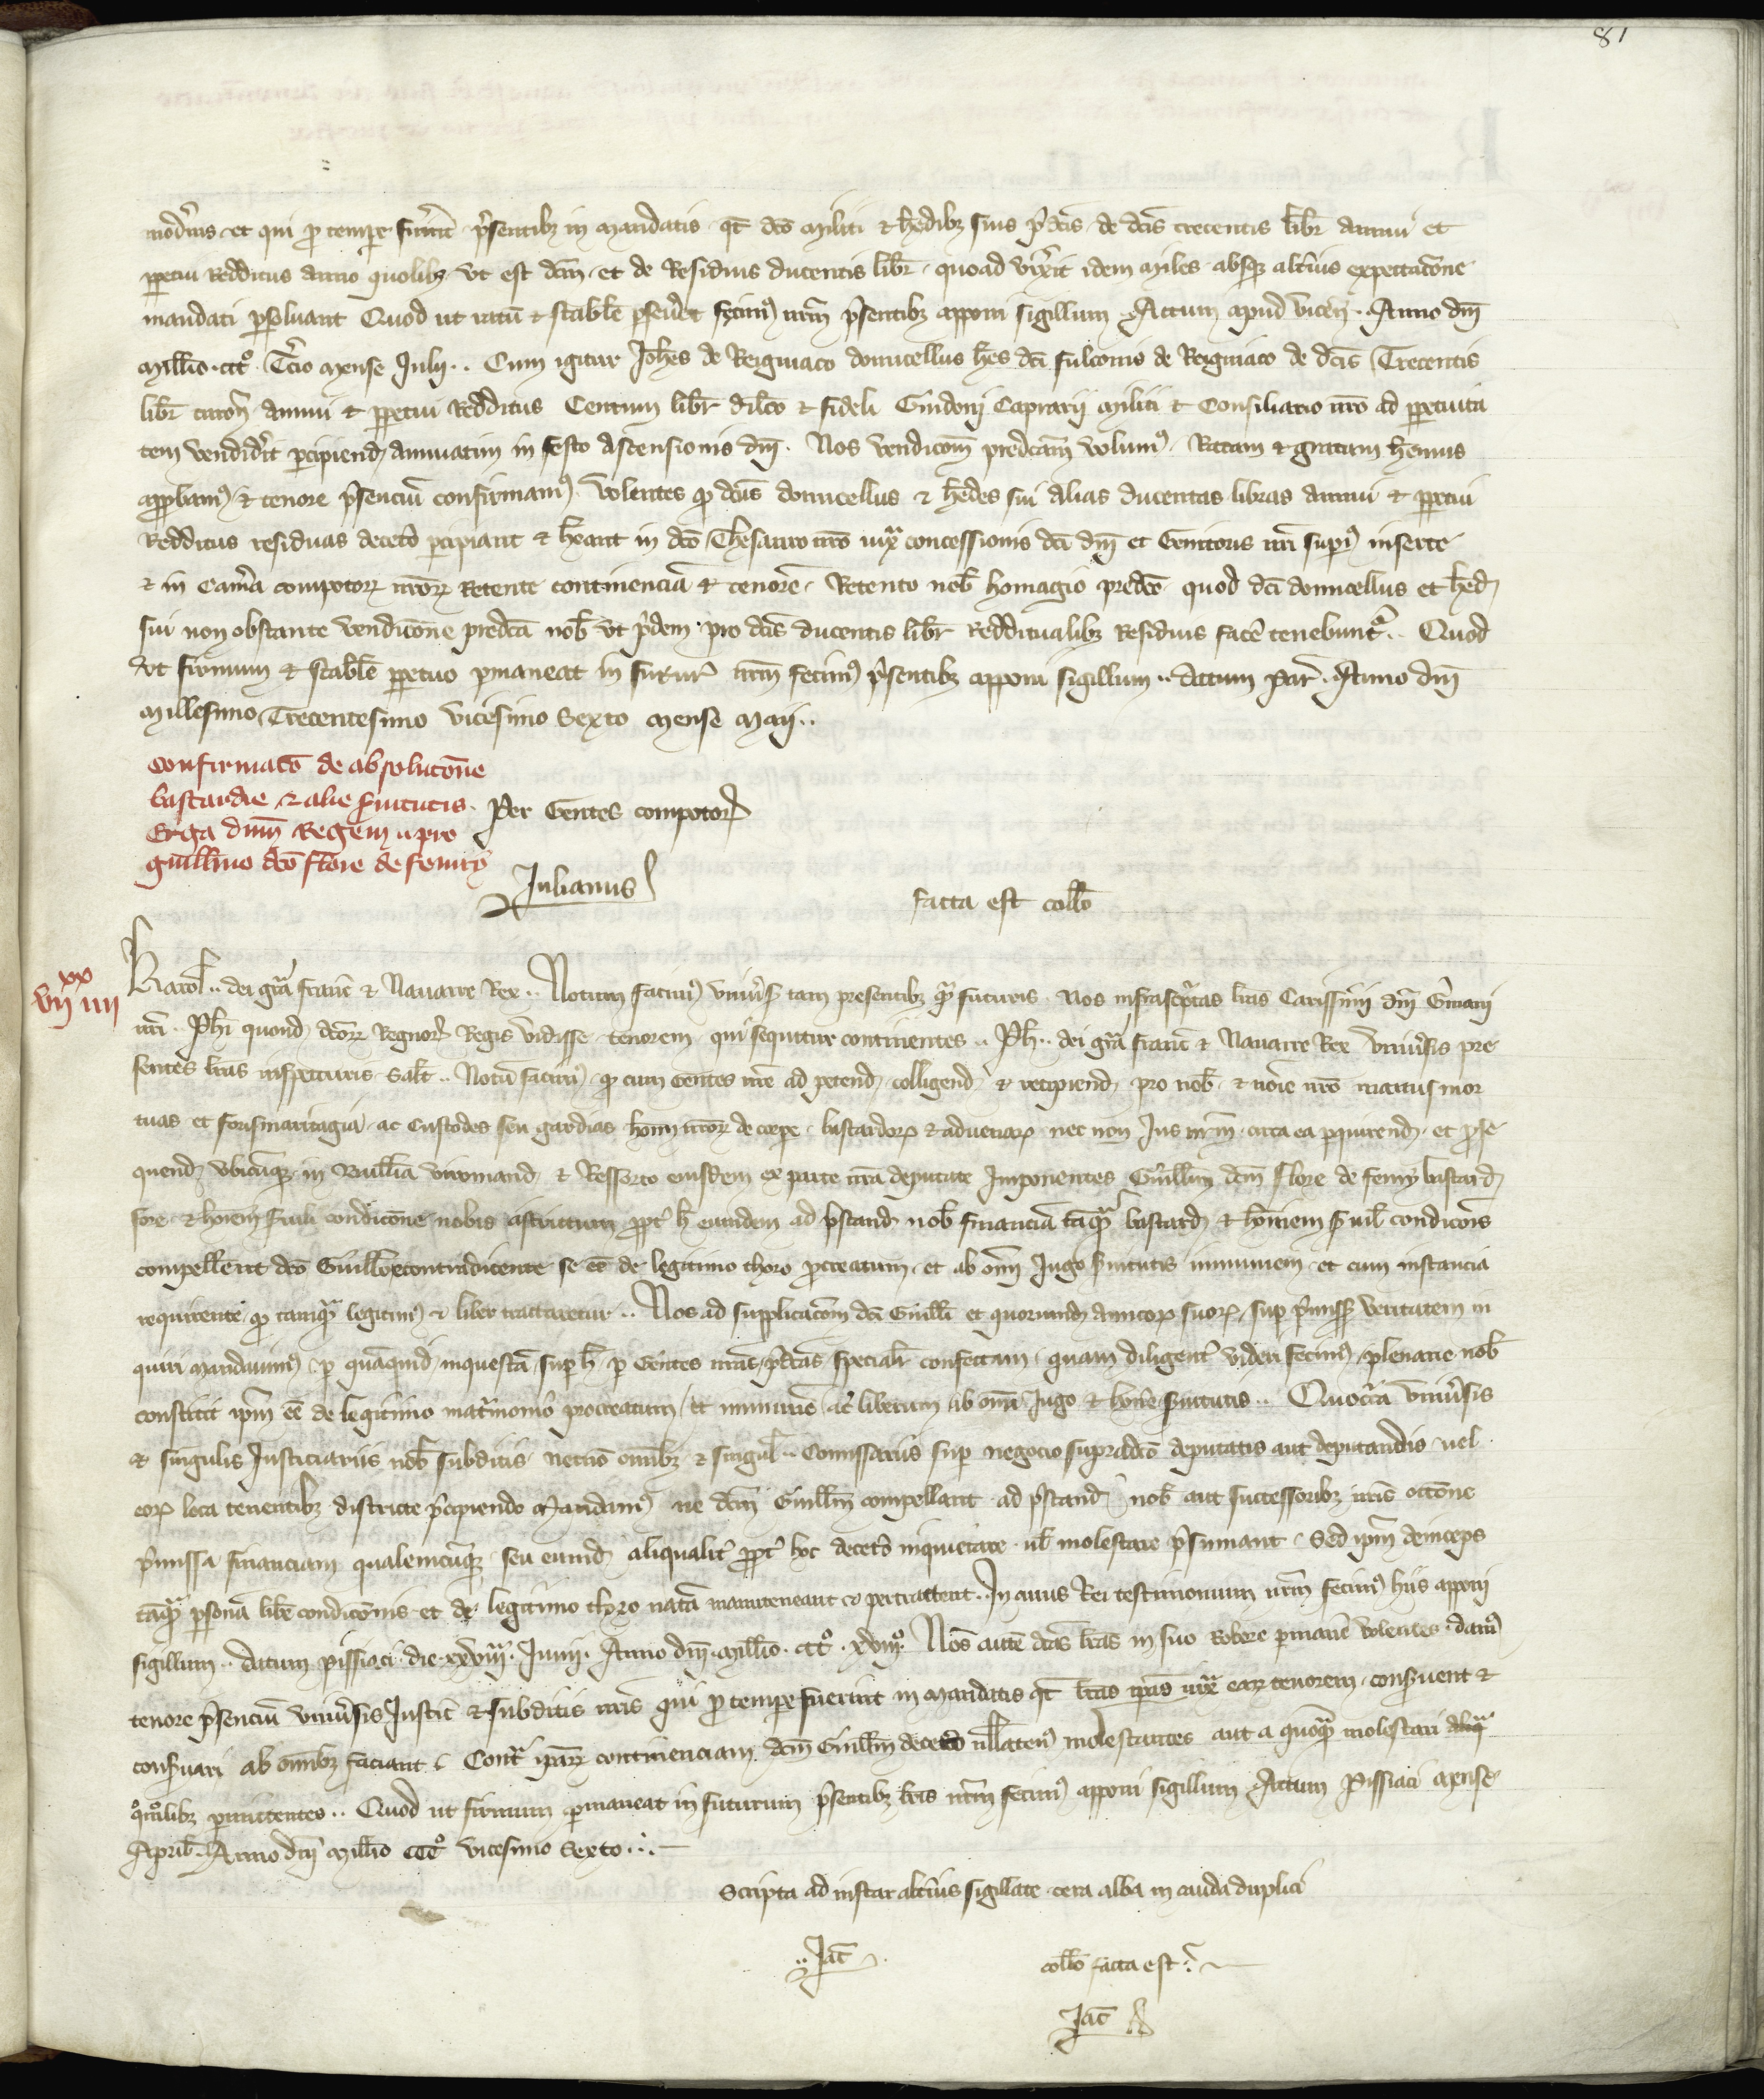 81
modernis et qui pro tempore fuerint presentibus in mandatis qt dco militi et hedibus suis predcis de dcis trecentis libr annui et
perpetui redditus anno quolibet ut est dcm et de residuis ducentis libr quoad vixerit idem miles absque alterius expectacione
mandati persoluant Quod ut ratum et stabile perseueret fecimus nrm presentibus apponi sigillum Actum apud vicen Anno dni
millio ccco Tercio mense Julij Cum igitur Johes de Reigniaco domicellus hes dci fulconis de Reigniaco de dcis Trecentis
libr turon annui et perpetui redditus Centum libr dilco et fideli Guidoni Caprarij militi et Consiliario nro ad perpetuita
tem vendiderit percipiend annuatim in festo Ascensionis dni Nos vendicom predcam volumus Ratam et gratam hemus
approbamus et tenore presencium confirmamus volentes quod dcus domicellus et hedes sui alias ducentas libras annui et perpetui
Redditus residuas decetero percipiant et heant in dco Thesauro nro iuxta concessionis dci dni et Genitoris nri superius inserte
et in Camera compotorum nrorum Retente continenciam et tenorem Retento nob homagio predco quod dci domicellus et hed
sui non obstante vendicione predca nob ut pridem pro dcis ducentis libr Redditualibus Residuis facere tenebuntur Quod
ut firmum et stabile perpetuo permaneat in futur nrm fecimus presentibus apponi sigillum datum Par Anno dni
Millesimo Trecentesimo vicesimo Sexto mense Maij
Confirmaco de absolucione
bastardie et alie seruitutis
Erga dnm Regem pro
guillmo dco flore de femy
Per Gentes compotor
Julianus
facta est collo
vii xx iiii
Karol dei gra franc et Nauarre Rex Notum facimus uniuersis tam presentibus quam futuris nos infrascriptas lras Carissimi dni Germani
nri Phi quond dcorum Regnorum Regis vidisse tenorem qui sequitur continentes Ph dei gra franc et Nauarre Rex Uniuersis pre
sentes lras inspecturis salt Notum facimus quod cum Gentes nre ad petend colligend et recipiend pro nob et noie nro manus mor
tuas et forismaritagia ac Custodes seu gardias homin nrorum de corpore bastardorum et aduenarum nec non Jus nrm circa ea perquirend et prose
quend ubicumque in Bailliuia viromand et Ressorto eiusdem ex parte nra deputate Imponentes Guillm dcm flore de femy bastard
fore et hoiem seruili condicione nobis astrictum propter hoc eundem ad prestand nob financiam tanquam bastard et hominem seruilis condicionis
compellerent dco Guillo contradicente se esse de legitimo thoro procreatum et ab omni Jugo seruitutis immunem et cum instancia
requirente quod tanquam legitimus et liber tractaretur Nos ad supplicacom dci Guilli et quorumdam amicorum suorum super premissis veritatem in
quiri mandauimus per quamquid inquestam super hoc per Gentes nras predcas specialiter confectam quam diligenter videri fecimus plenarie nob
constitit ipm esse de legitimo matrimonio procreatum et immunem ac liberum ab omni Jugo et honere seruitutis Quocirca uniuersis
et singulis Justiciariis nob subditis necnon omnibus et singul Comissariis super negocio supradco deputatis aut deputandis uel
eorum loca tenentibus districte precipiendo Mandamus ne dcm Guillm compellant ad prestand nob aut successoribus nris occone
premissa financiam qualemcunque seu eumd aliqualiter propter hoc decetero inquietare uel molestare presumant Sed ipm deinceps
tanquam personam libere condicionis et de legitimo thoro natam manuteneant et pertractent In cuius Rei testimonium nrm fecimus hiis apponi
sigillum datum Pissiaci die xxviii Junii Anno dni millio ccco xviiio Nos autem dcas lras in suo Robore permanere volentes damus
tenore presencium uniuersis Justic et subditis nris qui pro tempore fuerint in mandatis qt lras ipas iuxta earum tenorem conseruent et
conseruari ab omnibus faciant Contra iparum continenciam dcm Guillm decetero nullatenus molestantes aut a quoquam molestari
quomolibet permittentes Quod ut firmum permaneat in futurum presentibus lris nrm fecimus apponi sigillum Actum Pissiaci mense
April Anno dni millio ccco vicesimo Sexto
Scripta ad instar alterius sigillate cera alba in cauda duplici
Jac
collo facta est
Jac